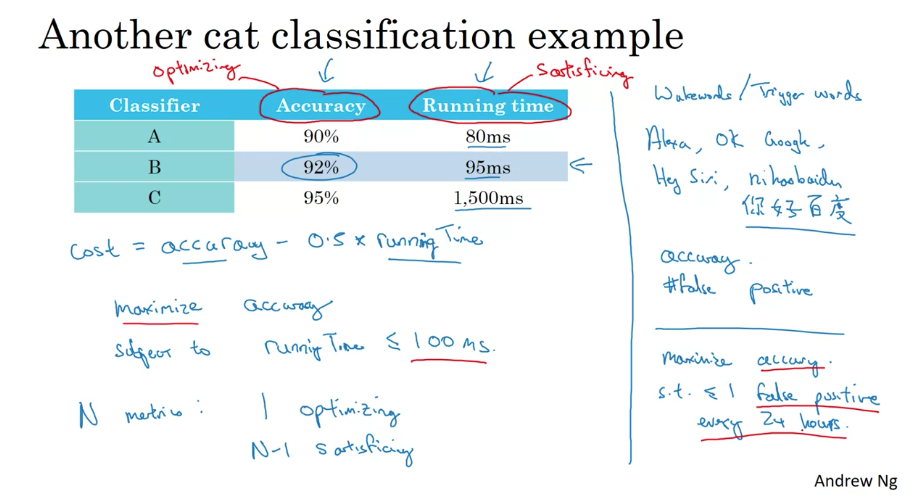 Another cat classification example
optimizing
satisficing
Classifier Accuracy Running time
A 90% 80ms
B 92% 95ms
C 95% 1,500ms
cost = accuracy - 0.5 x runningTime
maximize accuracy
subject to runningTime ≤ 100 ms.
N metrics : 1 optimizing
N-1 satisficing
Wakewords / Trigger words
Alexa, OK Google,
Hey Siri, nihaobaidu
你好百度
accuracy.
#false positive
maximize accuracy.
s.t. ≤ 1 false positive
every 24 hours.
Andrew Ng